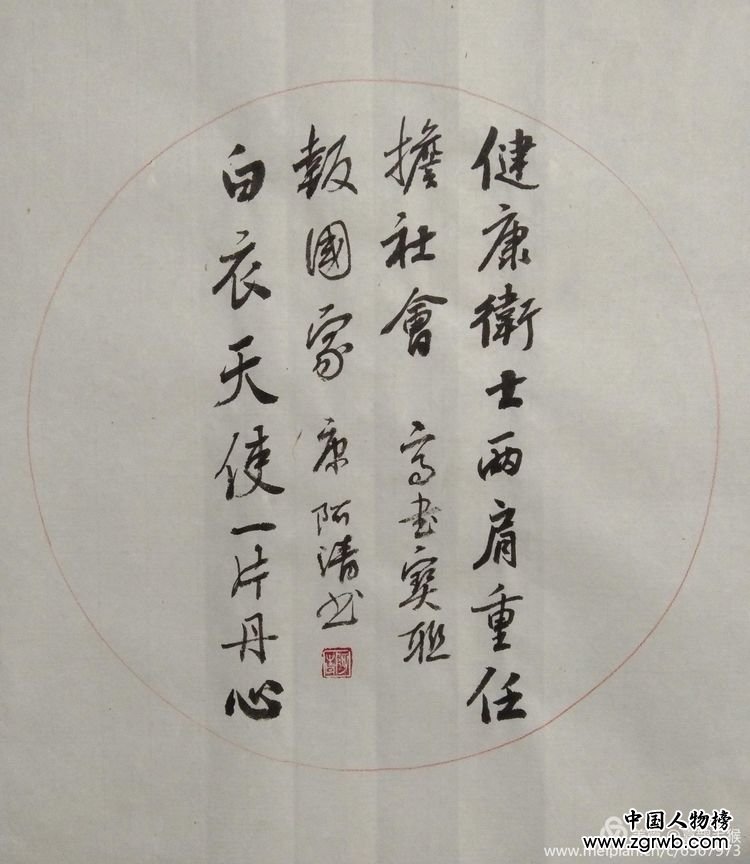 健康衛士兩肩重任
擔社會 高书 联
白衣天使一片丹心
報國家 康阿清书
中国人物榜
www.zgrwb.com